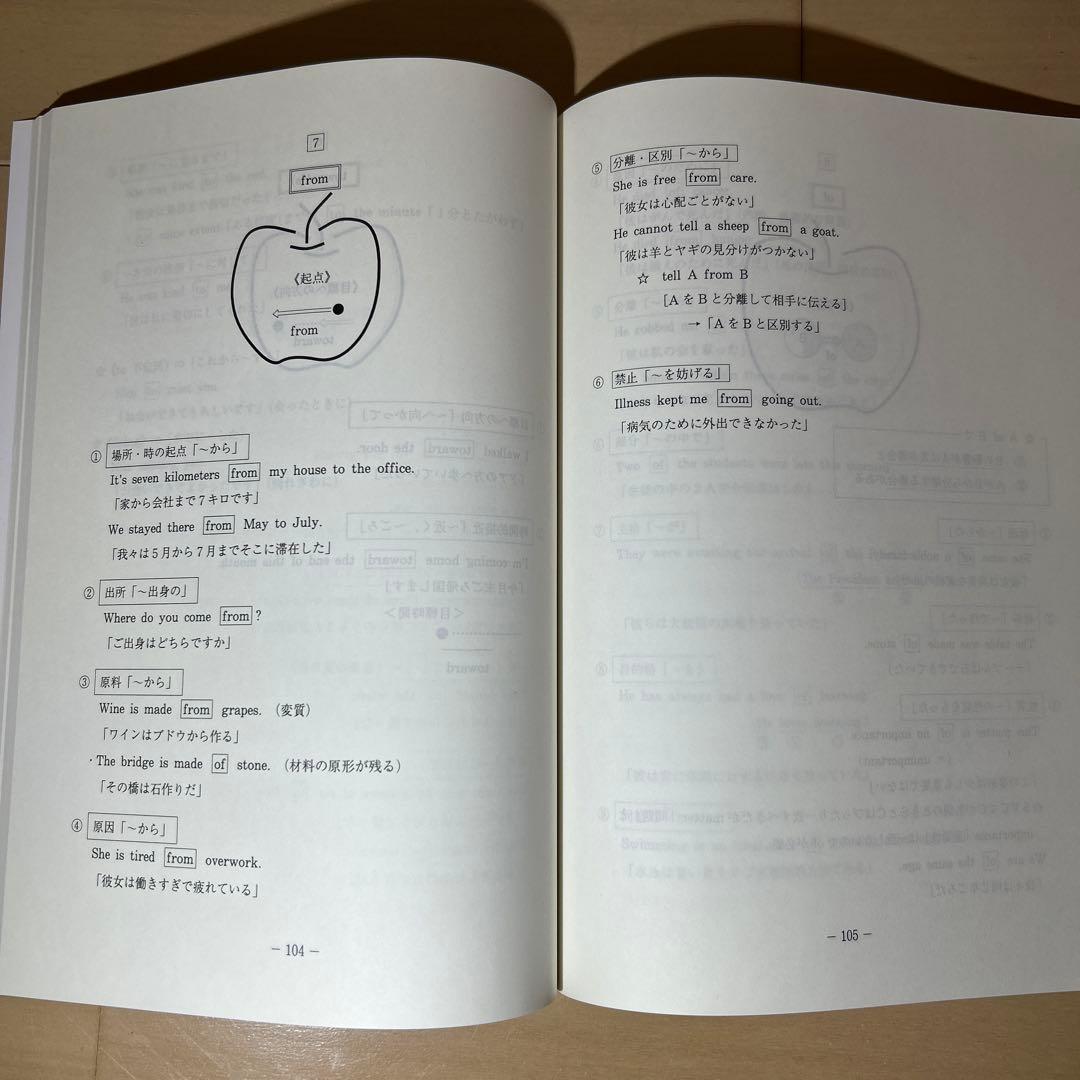 7
from
《起点》
from
① 場所・時の起点「～から」
It's seven kilometers from my house to the office.
「家から会社まで7キロです」
We stayed there from May to July.
「我々は5月から7月までそこに滞在した」
② 出所「～出身の」
Where do you come from ?
「ご出身はどちらですか」
③ 原料「～から」
Wine is made from grapes. （変質）
「ワインはブドウから作る」
・The bridge is made of stone. （材料の原形が残る）
「その橋は石作りだ」
④ 原因「～から」
She is tired from overwork.
「彼女は働きすぎで疲れている」
－ 104 －
⑤ 分離・区別「～から」
She is free from care.
「彼女は心配ごとがない」
He cannot tell a sheep from a goat.
「彼は羊とヤギの見分けがつかない」
☆ tell A from B
［AをBと分離して相手に伝える］
→「AをBと区別する」
⑥ 禁止「～を妨げる」
Illness kept me from going out.
「病気のために外出できなかった」
－ 105 －